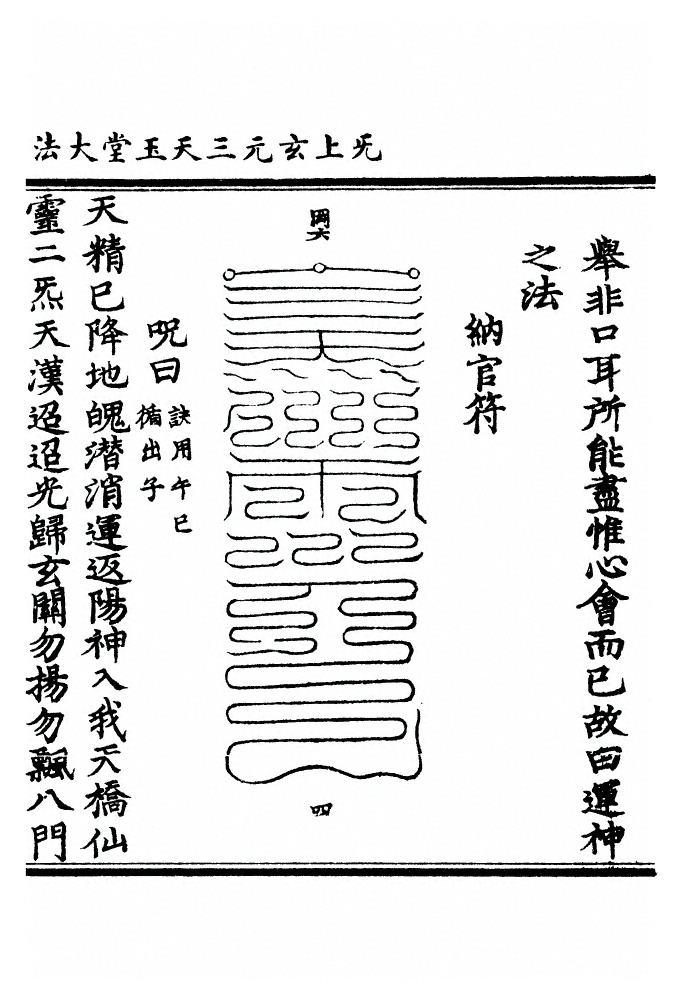 旡上玄元三天玉堂大法
舉非口耳所能盡惟心會而已故曰運神
之法
納官符
四
呪曰
訣用午巳
出子
天精已降地魄潛消運返陽神入我天橋仙
靈二炁天漢迢迢光歸玄關勿揚勿飄八門